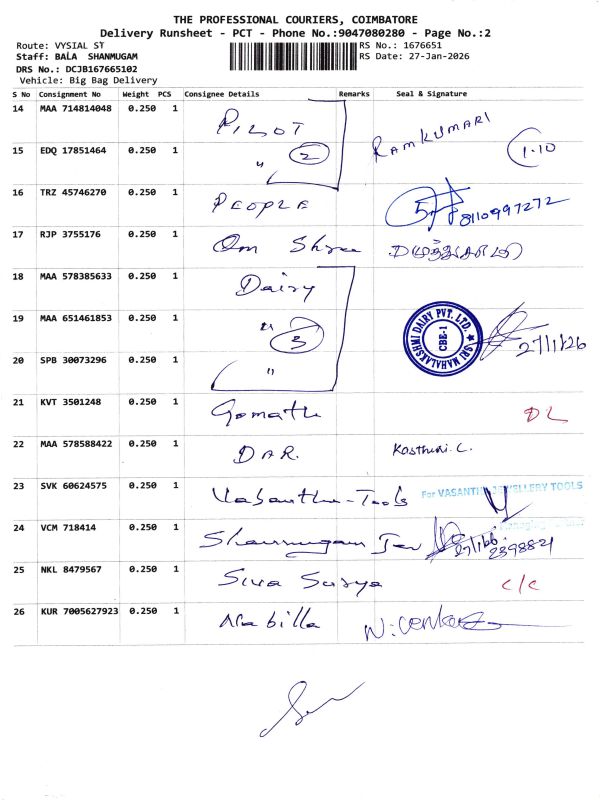 THE PROFESSIONAL COURIERS, COIMBATORE
Delivery Runsheet - PCT - Phone No.:9047080280 - Page No.:2
Route: VYSIAL ST
Staff: BALA SHANMUGAM
DRS No.: DCJB167665102
Vehicle: Big Bag Delivery
RS No.: 1676651
RS Date: 27-Jan-2026
S No Consignment No Weight PCS Consignee Details Remarks Seal & Signature
14 MAA 714814048 0.250 1 PILOT RAMKUMARI
15 EDQ 17851464 0.250 1 " 2 1.10
16 TRZ 45746270 0.250 1 PEOPLE 8110997272
17 RJP 3755176 0.250 1 Om Shree
18 MAA 578385633 0.250 1 Dairy
19 MAA 651461853 0.250 1 " 3 SRI MAHALAKSHMI DAIRY PVT. LTD. CBE-1 27/1/26
20 SPB 30073296 0.250 1 "
21 KVT 3501248 0.250 1 Gomathi DL
22 MAA 578588422 0.250 1 DAR. Kasthuri.C.
23 SVK 60624575 0.250 1 Vasantha-Tools For VASANTHA JEWELLERY TOOLS
24 VCM 718414 0.250 1 Shanmugam Managing
25 NKL 8479567 0.250 1 Siva Surya C/C
26 KUR 7005627923 0.250 1 Nabilla N.